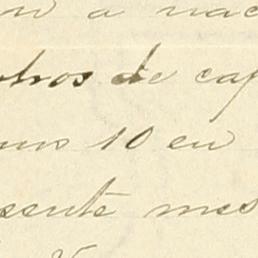 n a nac
otros de caf
uno 10 en
esente mes